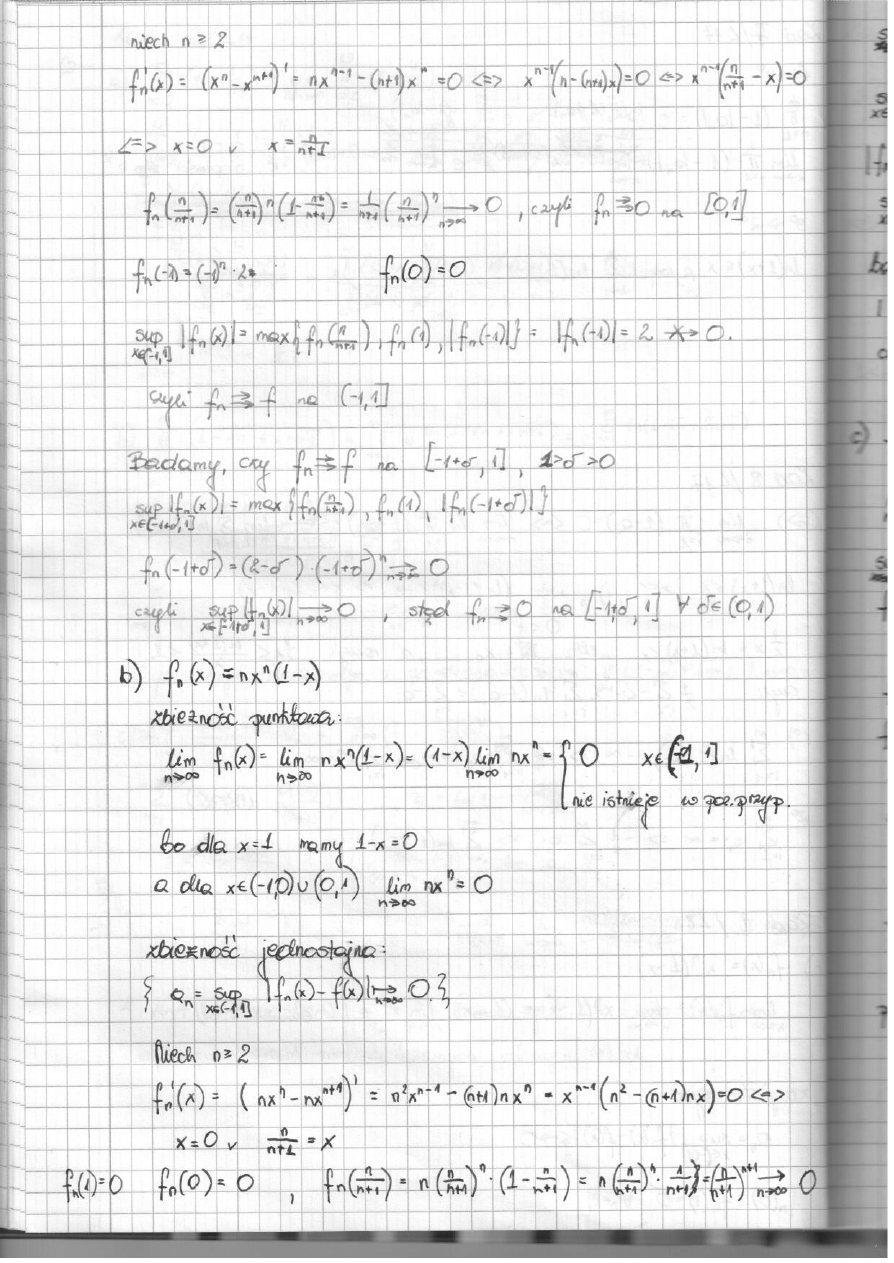 niech n ≥ 2
fₙ'(x) = (xⁿ - xⁿ⁺¹)' = nxⁿ⁻¹ - (n+1)xⁿ = 0 <=> xⁿ⁻¹(n-(n+1)x)=0 <=> xⁿ⁻¹(n/(n+1) - x)=0
<=> x=0 ∨ x = n/(n+1)
fₙ(n/(n+1)) = (n/(n+1))ⁿ (1 - n/(n+1)) = 1/(n+1) (n/(n+1))ⁿ →_{n→∞} 0 , czyli fₙ ⇉ 0 na [0,1]
fₙ(-1) = (-1)ⁿ · 2 fₙ(0) = 0
sup_{x∈(-1,1]} |fₙ(x)| = max{fₙ(n/(n+1)), fₙ(1), |fₙ(-1)|} = |fₙ(-1)| = 2 ↛ 0.
czyli fₙ ⇉̸ f na (-1,1]
Badamy, czy fₙ ⇉ f na [-1+σ, 1], 1>σ>0
sup_{x∈[-1+σ,1]} |fₙ(x)| = max{fₙ(n/(n+1)), fₙ(1), |fₙ(-1+σ)|}
fₙ(-1+σ) = (2-σ)·(-1+σ)ⁿ →_{n→∞} 0
czyli sup_{x∈[-1+σ,1]} |fₙ(x)| →_{n→∞} 0 , stąd fₙ ⇉ 0 na [-1+σ, 1] ∀ σ∈(0,1)
b) fₙ(x) = nxⁿ(1-x)
zbieżność punktowa:
lim_{n→∞} fₙ(x) = lim_{n→∞} nxⁿ(1-x) = (1-x) lim_{n→∞} nxⁿ = { 0 x∈(-1, 1]
nie istnieje w poz. przyp.
bo dla x=1 mamy 1-x=0
a dla x∈(-1,0)∪(0,1) lim_{n→∞} nxⁿ = 0
zbieżność jednostajna:
{ aₙ = sup_{x∈(-1,1]} |fₙ(x) - f(x)| →_{n→∞} 0. }
Niech n ≥ 2
fₙ'(x) = (nxⁿ - nxⁿ⁺¹)' = n²xⁿ⁻¹ - (n+1)nxⁿ = xⁿ⁻¹(n² - (n+1)nx)=0 <=>
x=0 ∨ n/(n+1) = x
fₙ(1)=0 fₙ(0) = 0 , fₙ(n/(n+1)) = n(n/(n+1))ⁿ · (1 - n/(n+1)) = n(n/(n+1))ⁿ · 1/(n+1) = (n/(n+1))ⁿ⁺¹ →_{n→∞} 0